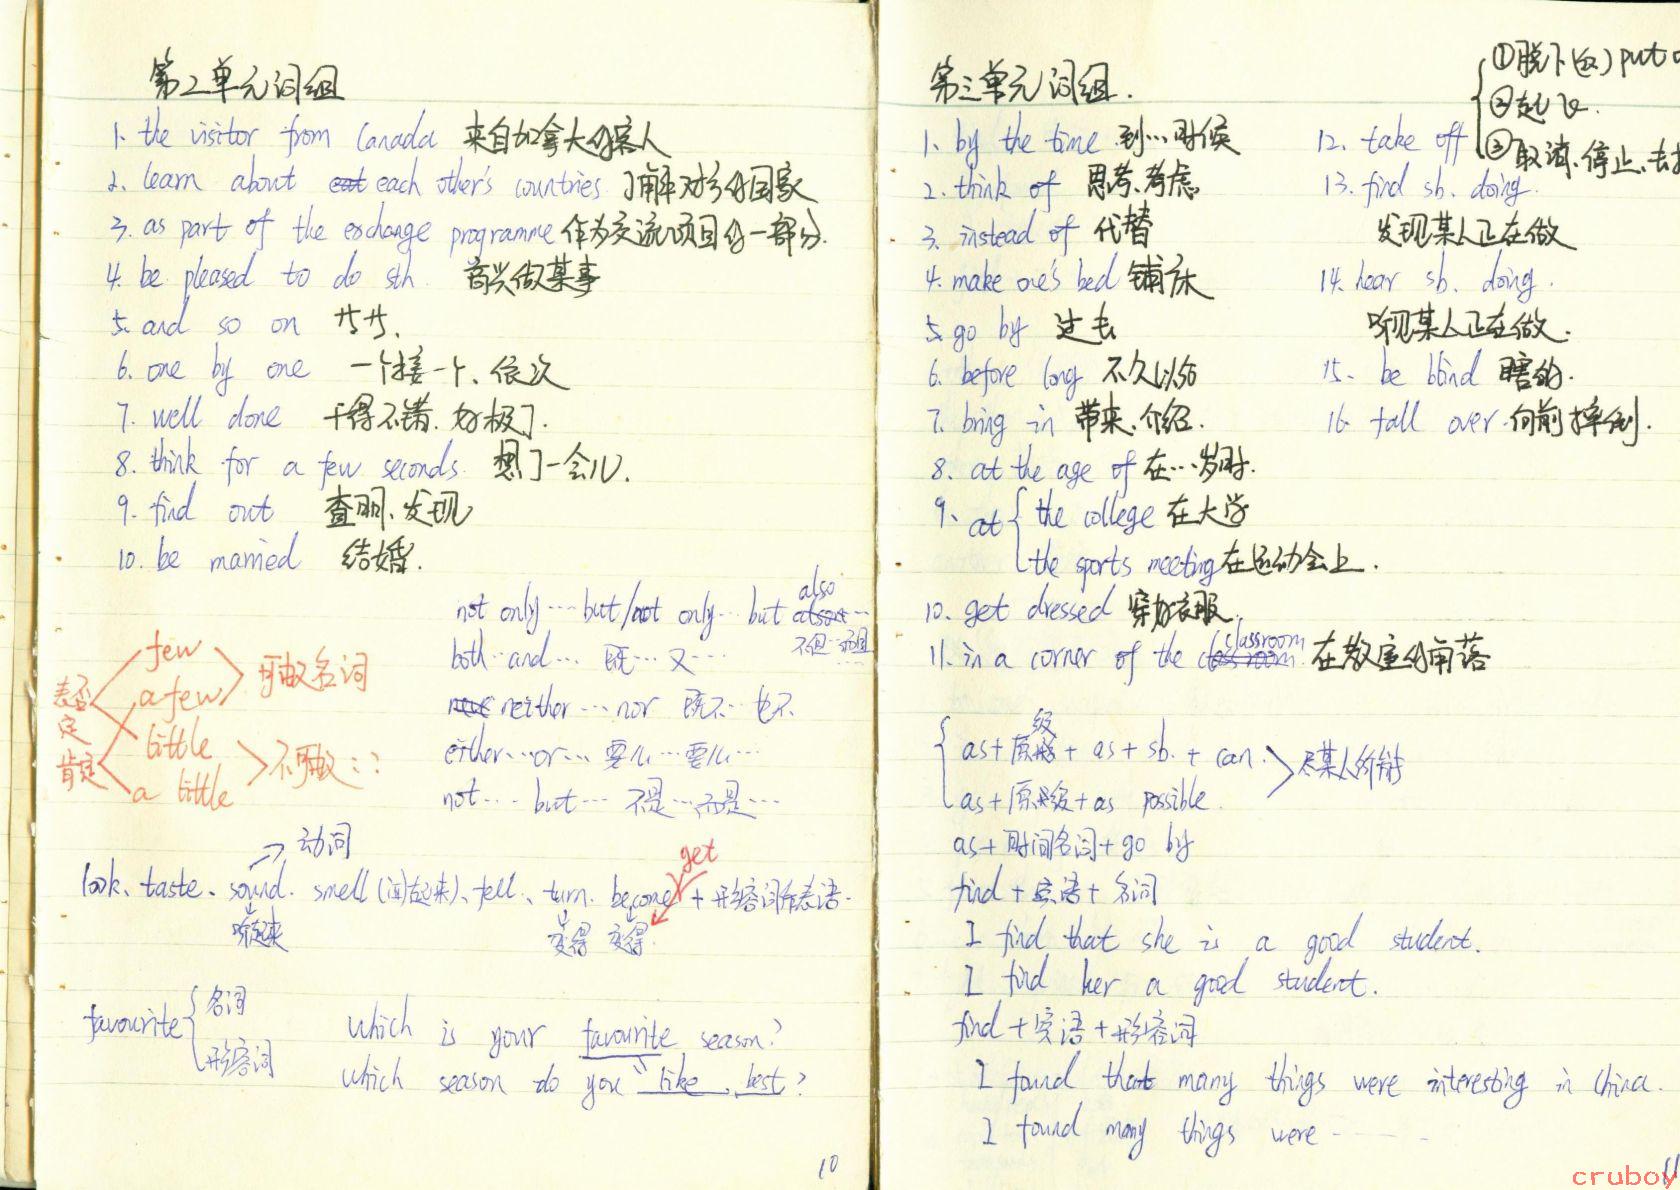 第二单元词组
1. the visitor from Canada 来自加拿大的客人
2. learn about each other's countries 了解对方的国家
3. as part of the exchange programme 作为交流项目的一部分.
4. be pleased to do sth. 高兴做某事
5. and so on 等等.
6. one by one 一个接一个、依次
7. well done 干得不错. 好极了.
8. think for a few seconds. 想了一会儿.
9. find out 查明、发现
10. be married 结婚.
not only…but/not only…but also…
不但…而且…
both…and… 既…又…
neither…nor 既不…也不
either…or… 要么…要么…
not…but… 不是…而是…
few
a few
可数名词
little
a little
不可数::
表否定
肯定
动词
look、taste、sound、smell(闻起来)、fell、turn. become + 形容词作表语.
get
听起来
变得 变得.
favourite
名词
形容词
which is your favourite season?
which season do you like best?
10
第三单元词组.
1. by the time 到…时候
2. think of 思考、考虑
3. instead of 代替
4. make one's bed 铺床
5. go by 过去
6. before long 不久以后
7. bring in 带来、介绍.
8. at the age of 在…岁时.
9. at
the college 在大学
the sports meeting 在运动会上.
10. get dressed 穿好衣服.
11. in a corner of the classroom 在教室的角落
12. take off
①脱下(反) put
②起飞.
③取消、停止、去
13. find sb. doing.
发现某人正在做
14. hear sb. doing.
听见某人正在做.
15. be blind 瞎的.
16. fall over 向前摔倒.
as+原级+as+sb.+can.
as+原级+as possible.
尽某人所能
as+时间名词+go by
find+宾语+名词
I find that she is a good student.
I find her a good student.
find+宾语+形容词
I found that many things were interesting in China.
I found many things were……
11
cruboy